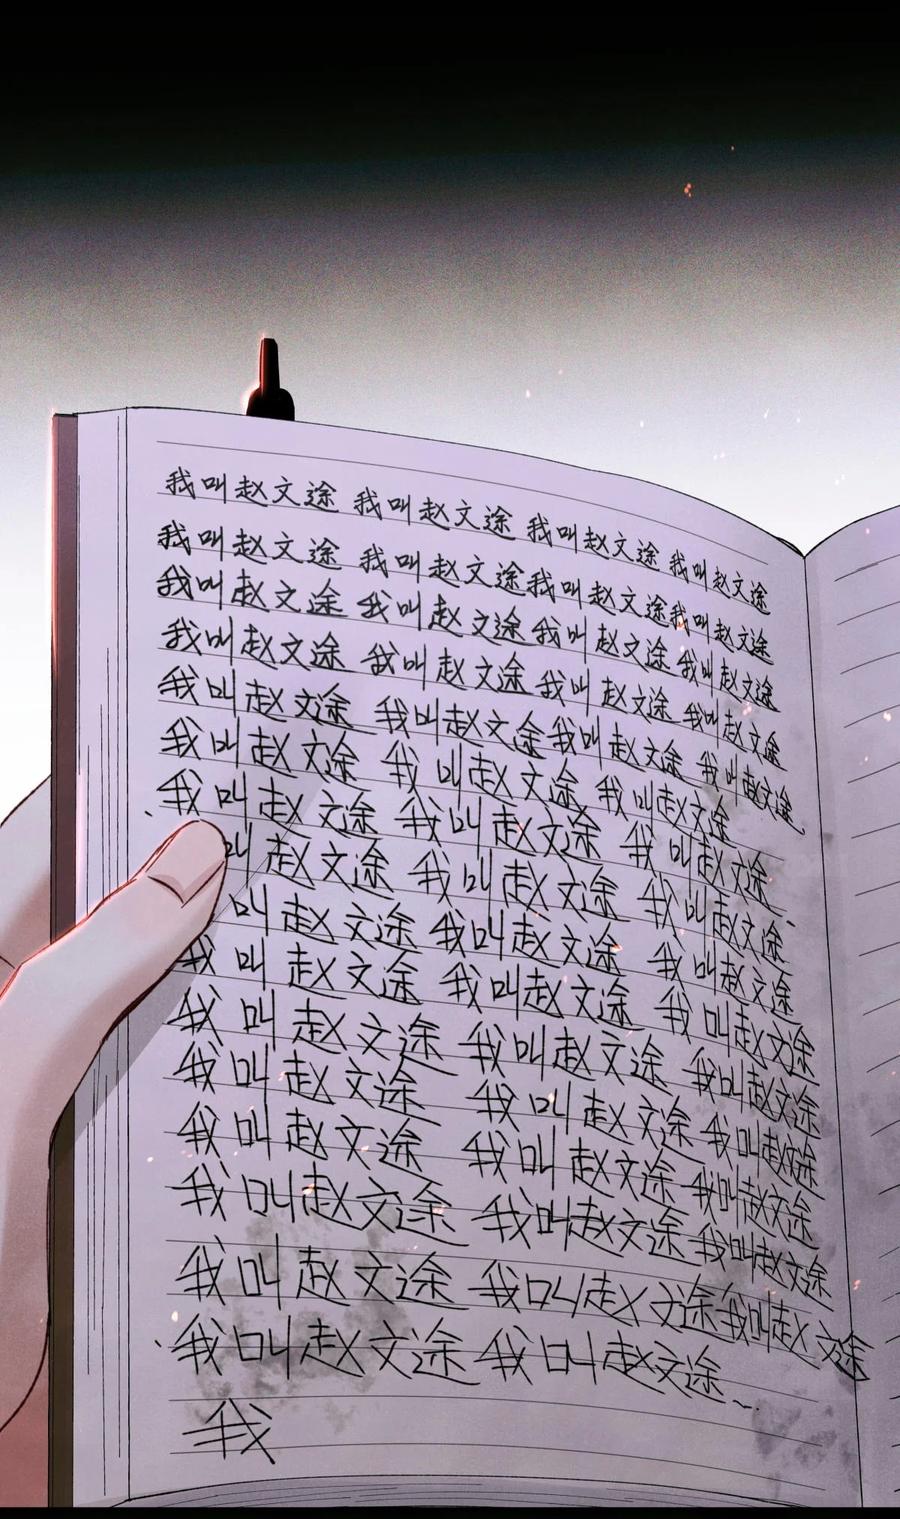 我叫赵文途 我叫赵文途 我叫赵文途 我叫赵文途
我叫赵文途 我叫赵文途 我叫赵文途 我叫赵文途
我叫赵文途 我叫赵文途 我叫赵文途 我叫赵文途
我叫赵文途 我叫赵文途 我叫赵文途 我叫赵文途
我叫赵文途 我叫赵文途 我叫赵文途 我叫赵文途
我叫赵文途 我叫赵文途 我叫赵文途
我叫赵文途 我叫赵文途 我叫赵文途
叫赵文途 我叫赵文途 我叫赵文途
叫赵文途 我叫赵文途 我叫赵文途
我叫赵文途 我叫赵文途 我叫赵文途
我叫赵文途 我叫赵文途 我叫赵文途
我叫赵文途 我叫赵文途 我叫赵文途
我叫赵文途 我叫赵文途 我叫赵文途
我叫赵文途 我叫赵文途 我叫赵文途
我叫赵文途 我叫赵文途 我叫赵文途
我叫赵文途 我叫赵文途
我